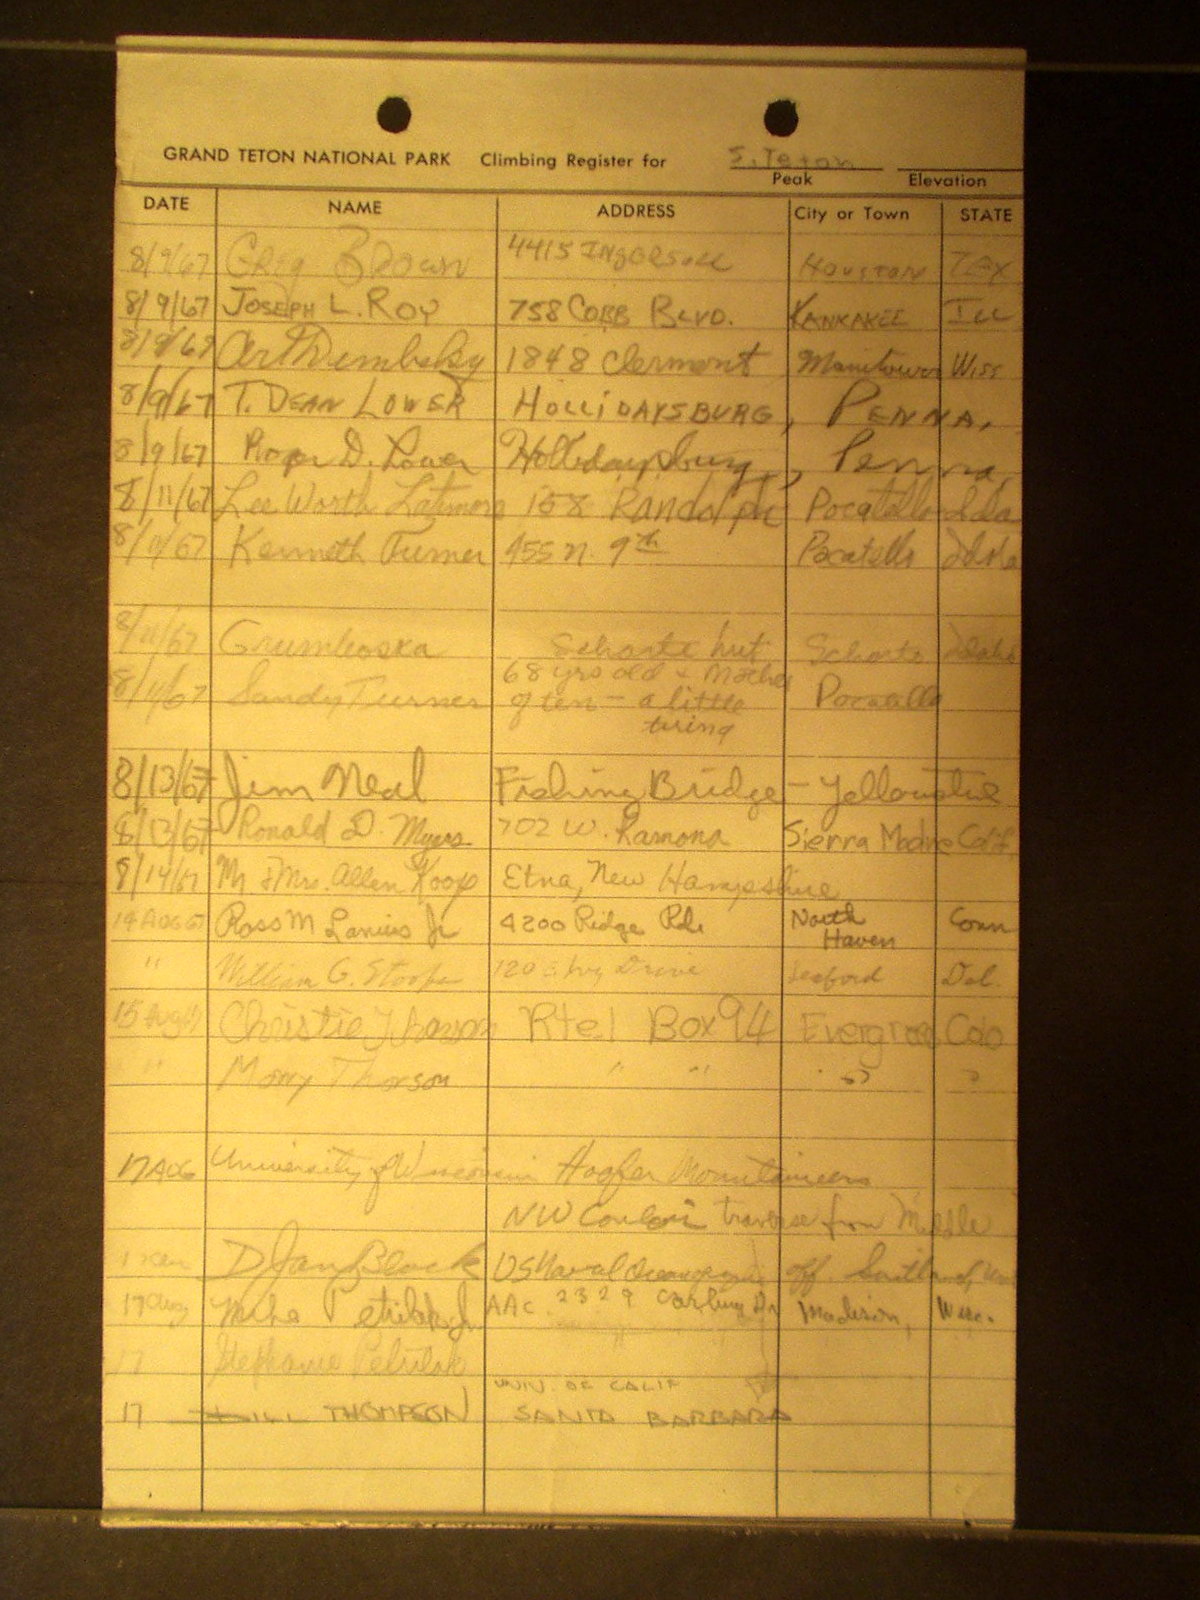 GRAND TETON NATIONAL PARK Climbing Register for S. Teton
Peak Elevation
DATE NAME ADDRESS City or Town STATE
8/9/67 Greg Brown 4415 Ingersoll Houston Tex
8/9/67 Joseph L. Roy 758 Cobb Blvd. Kankakee Ill
8/9/67 Art Dembsky 1848 Clermont Manitowoc Wisc
8/9/67 T. Dean Lower Hollidaysburg, Penna.
8/9/67 Roger D. Lower Hollidaysburg, Penna.
8/11/67 Lee Worth Latimore 158 Randolph Pocatello Ida
8/11/67 Kenneth Turner 455 N. 9th Pocatello Idaho
8/11/67 hut Idaho
68 yrs old & Mother
8/11/67 Sandy Turner of ten - a little Pocatello
tiring
8/13/67 Jim Neal Fishing Bridge - Yellowstone
8/13/67 Ronald D. Myers 702 W. Ramona Sierra Madre Calif.
8/14/67 Mr & Mrs. Allen Koop Etna, New Hampshire
14 Aug 67 Ross M Lanius Jr 4200 Ridge Rd. North Haven Conn
" William G. 120 Ivy Drive Seaford Del.
15 Aug 67 Christie Thorson Rte 1 Box 94 Evergreen Colo
" Thorson " " " "
17 Aug University of Wisconsin Hoofer Mountaineers
NW Couloir traverse from Middle
D Jan Black US Naval off. Suitland,
17 Aug Mike Petrilak Jr AAC. 2329 Carling Dr Madison, Wisc.
17 Stephanie Petrilak "
UNIV. OF CALIF
17 BILL THOMPSON SANTA BARBARA